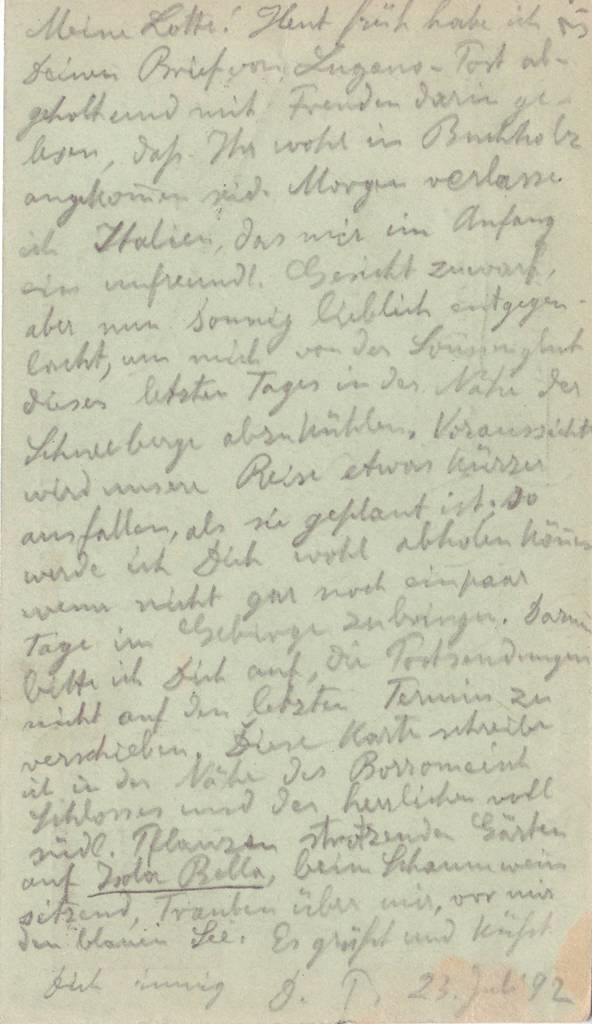 Meine Lotte! Heut früh habe ich
Deinen Brief von Lugano-Post ab-
geholt und mit Freuden darin ge-
lesen, daß Ihr wohl in Buchholz
angekom̄en seid. Morgen verlasse
ich Italien, das mir im Anfang
ein unfreundl. Gesicht zuwarf,
aber nun sonnig lieblich entgegen-
lacht, um mich von der Sonnenglut
dieses letzten Tages in der Nähe der
Schneeberge abzukühlen. Voraussichtl
wird unsere Reise etwas kürzer
ausfallen, als sie geplant ist. So
werde ich Dich wohl abholen kön̄en
wenn nicht gar noch ein paar
Tage im Gebirge zubringen. Darum
bitte ich Dich auf, die Postsendungen
nicht auf den letzten Termin zu
verschieben. Diese Karte schreibe
ich in der Nähe des Borromeisch
Schlosses und der herrlichen voll
südl. Pflanzen strotzenden Gärten
auf Isola Bella, beim Schaumwein
sitzend, Trauben über mir, vor mir
den blauen See. Es grüßt und küßt
Dich innig D. P. 23. Juli 92